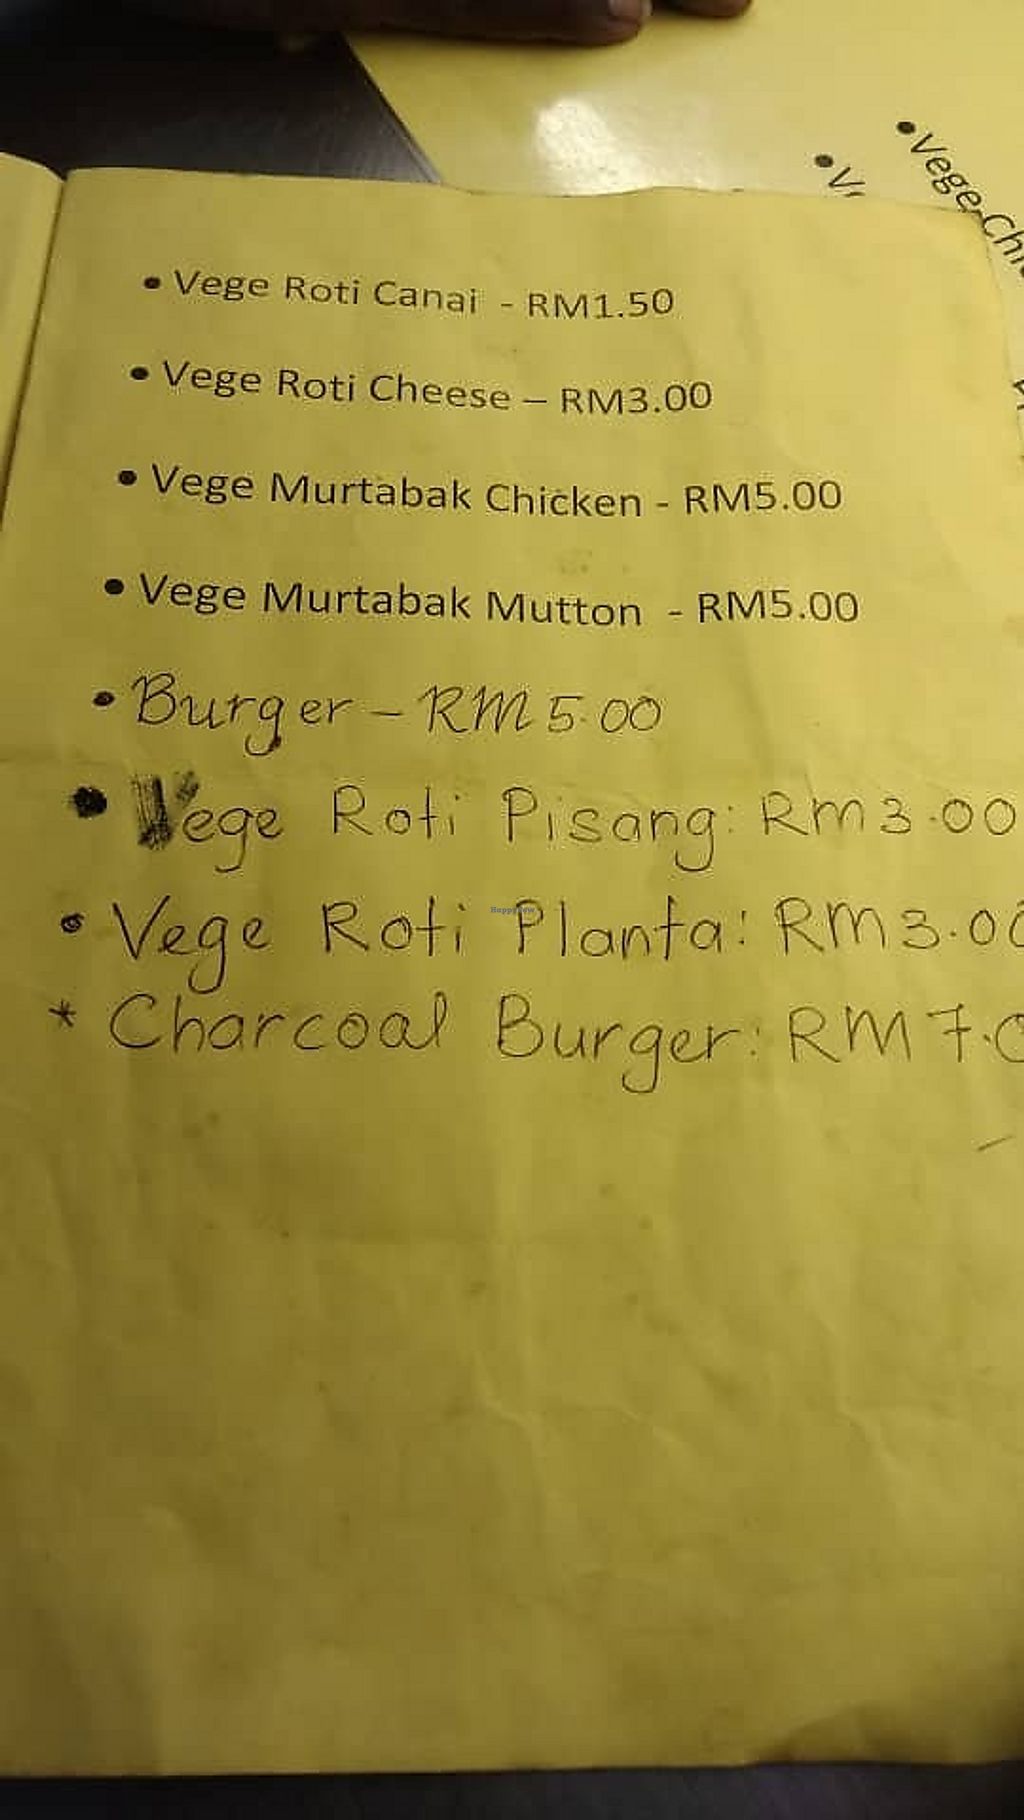 • Vege Chi
• V
• Vege Roti Canai - RM1.50
• Vege Roti Cheese – RM3.00
• Vege Murtabak Chicken - RM5.00
• Vege Murtabak Mutton - RM5.00
• Burger – RM 5.00
• Vege Roti Pisang: Rm3.00
• Vege Roti Planta: Rm3.00
* Charcoal Burger: RM 7.0
HappyCow